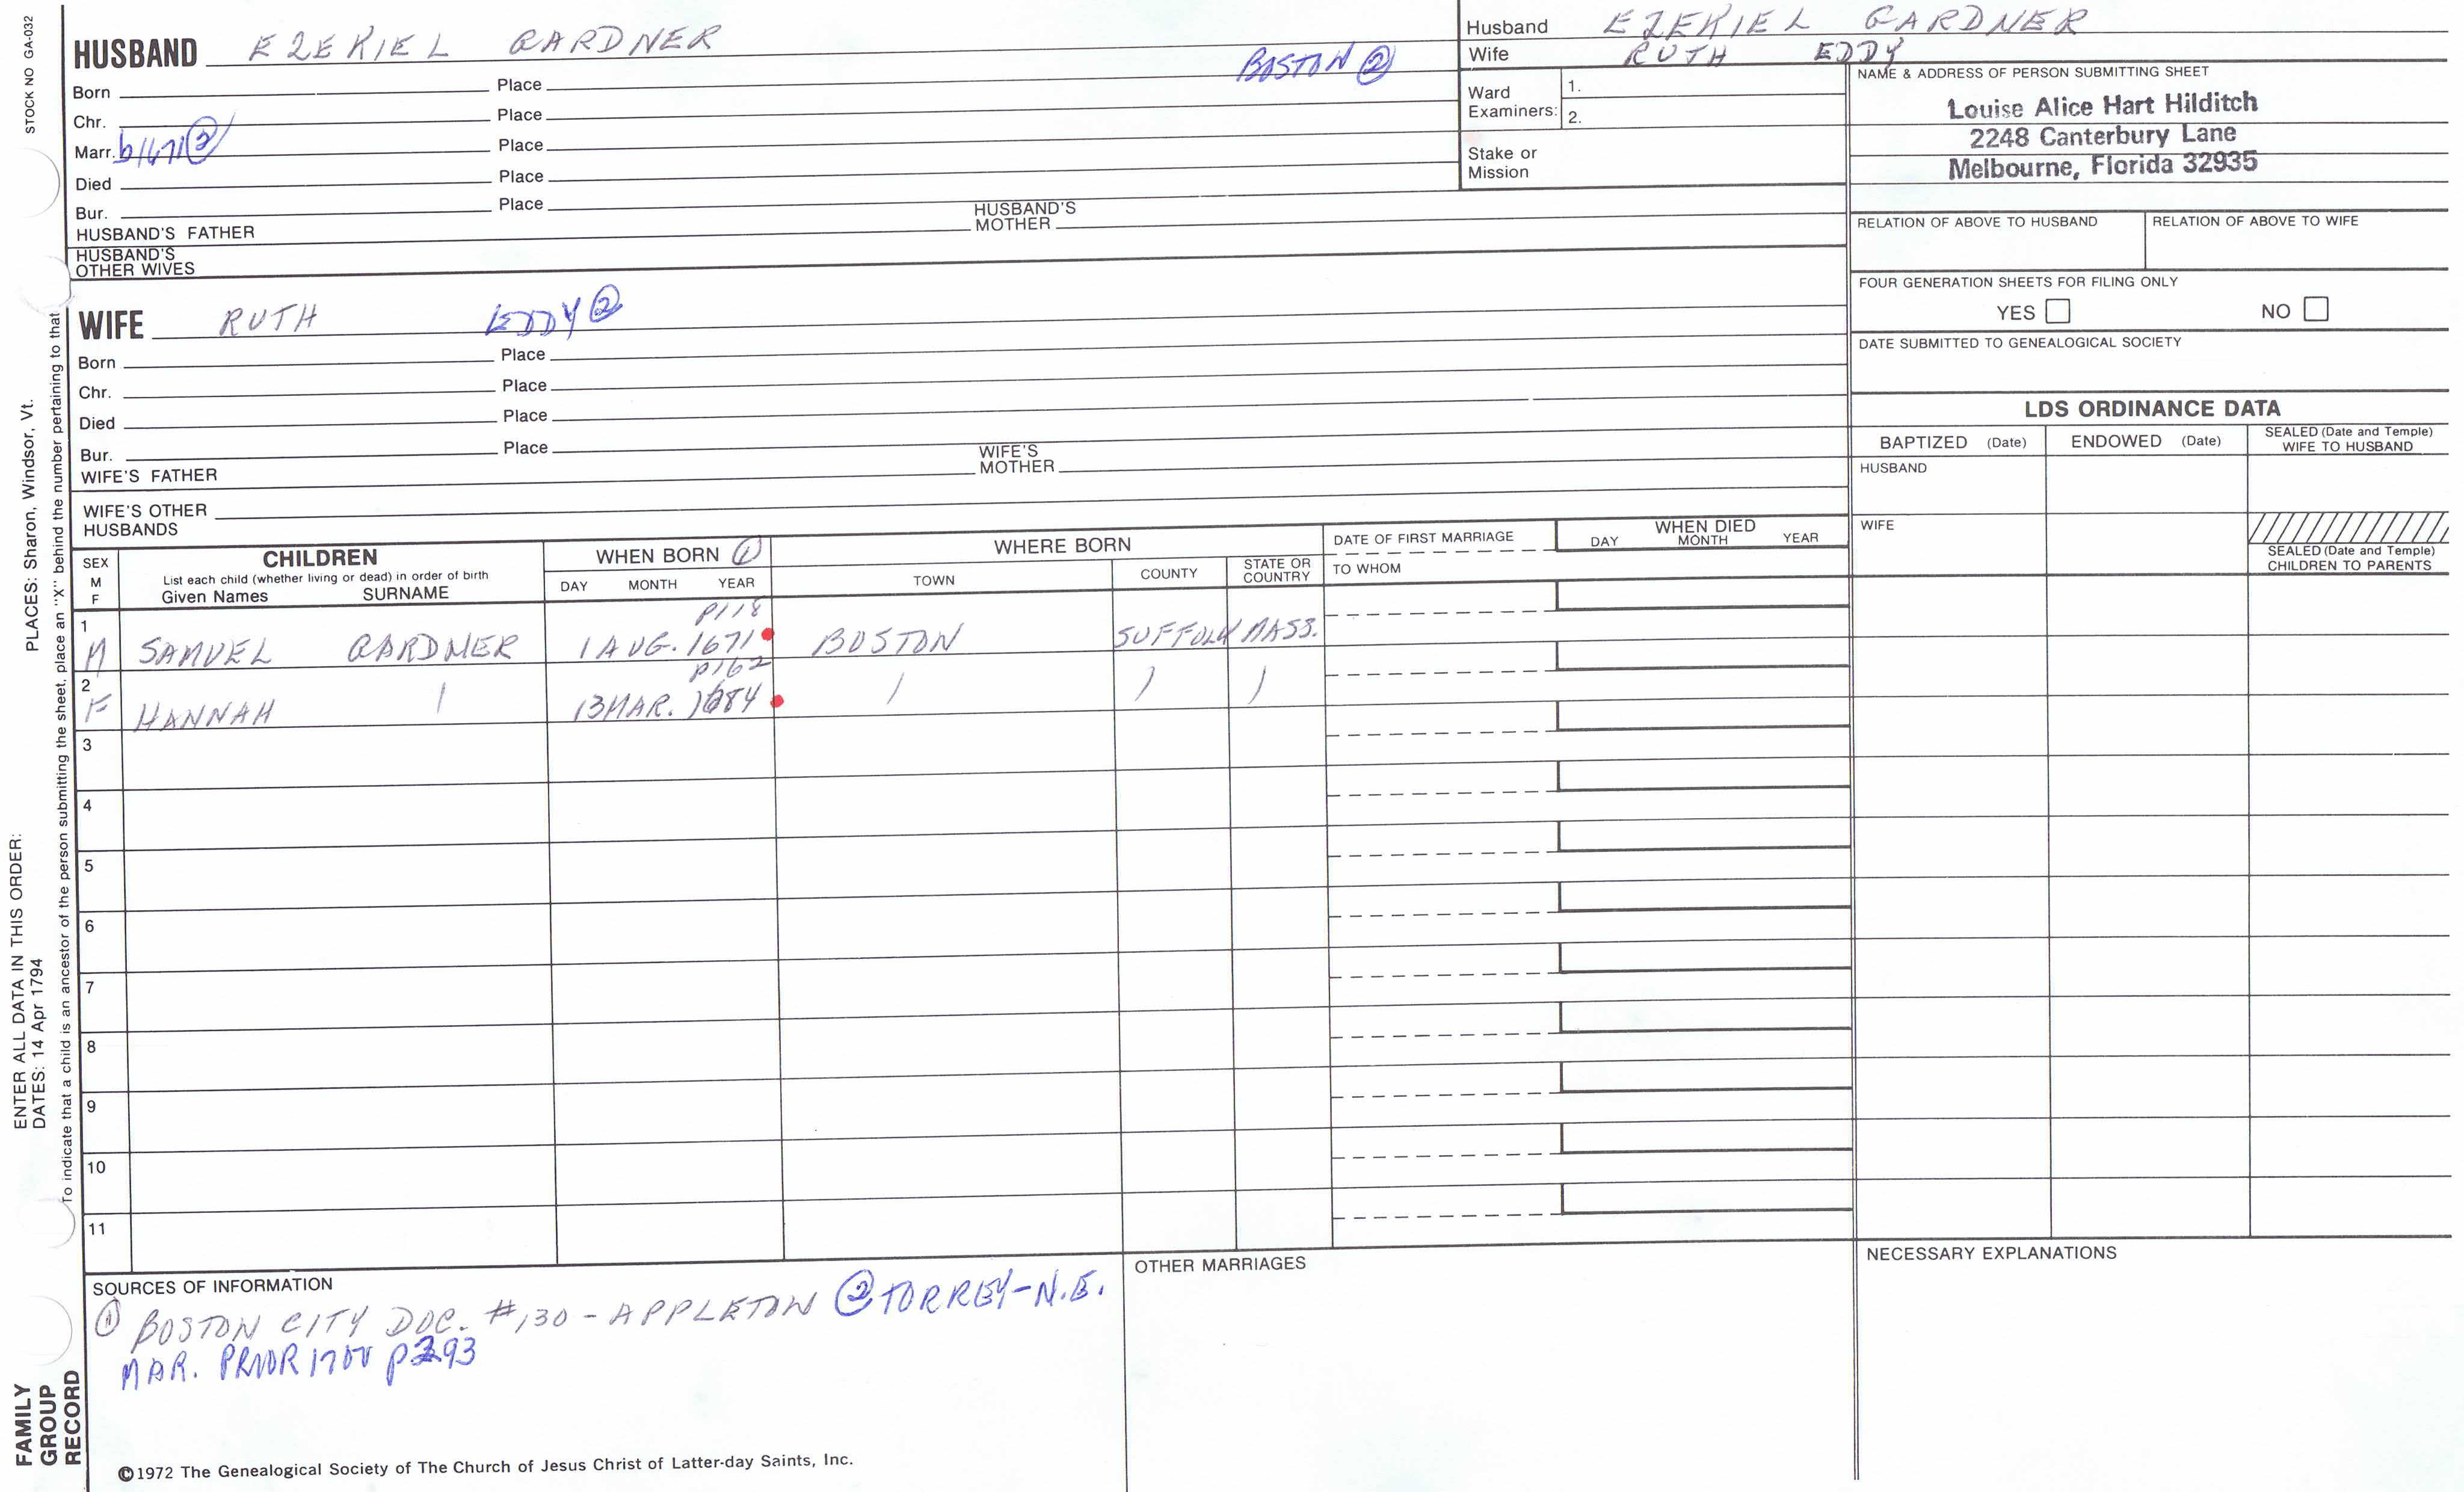 STOCK NO GA-032
PLACES: Sharon, Windsor, Vt.
ENTER ALL DATA IN THIS ORDER:
DATES: 14 Apr 1794
To indicate that a child is an ancestor of the person submitting the sheet, place an "X" behind the number pertaining to that
FAMILY
GROUP
RECORD
HUSBAND EZEKIEL GARDNER
BOSTON ②
Born Place
Chr. Place
Marr. b1671② Place
Died Place
Bur. Place
HUSBAND'S FATHER HUSBAND'S MOTHER
HUSBAND'S
OTHER WIVES
WIFE RUTH EDDY②
Born Place
Chr. Place
Died Place
Bur. Place
WIFE'S FATHER WIFE'S MOTHER
WIFE'S OTHER
HUSBANDS
Husband EZEKIEL GARDNER
Wife RUTH EDDY
Ward
Examiners: 1.
2.
Stake or
Mission
NAME & ADDRESS OF PERSON SUBMITTING SHEET
Louise Alice Hart Hilditch
2248 Canterbury Lane
Melbourne, Florida 32935
RELATION OF ABOVE TO HUSBAND RELATION OF ABOVE TO WIFE
FOUR GENERATION SHEETS FOR FILING ONLY
YES NO
DATE SUBMITTED TO GENEALOGICAL SOCIETY
LDS ORDINANCE DATA
BAPTIZED (Date) ENDOWED (Date) SEALED (Date and Temple)
WIFE TO HUSBAND
HUSBAND
WIFE
SEALED (Date and Temple)
CHILDREN TO PARENTS
SEX
M
F
CHILDREN
List each child (whether living or dead) in order of birth
Given Names SURNAME
WHEN BORN ①
DAY MONTH YEAR
WHERE BORN
TOWN COUNTY STATE OR
COUNTRY
DATE OF FIRST MARRIAGE
TO WHOM
WHEN DIED
DAY MONTH YEAR
p118
1 M SAMUEL GARDNER 1 AUG. 1671 BOSTON SUFFOLK MASS.
p162
2 F HANNAH 13 MAR. 1684
3
4
5
6
7
8
9
10
11
SOURCES OF INFORMATION
① BOSTON CITY DOC. #130 - APPLETON ② TORREY-N.E.
MAR. PRIOR 1700 p293
OTHER MARRIAGES
NECESSARY EXPLANATIONS
©1972 The Genealogical Society of The Church of Jesus Christ of Latter-day Saints, Inc.